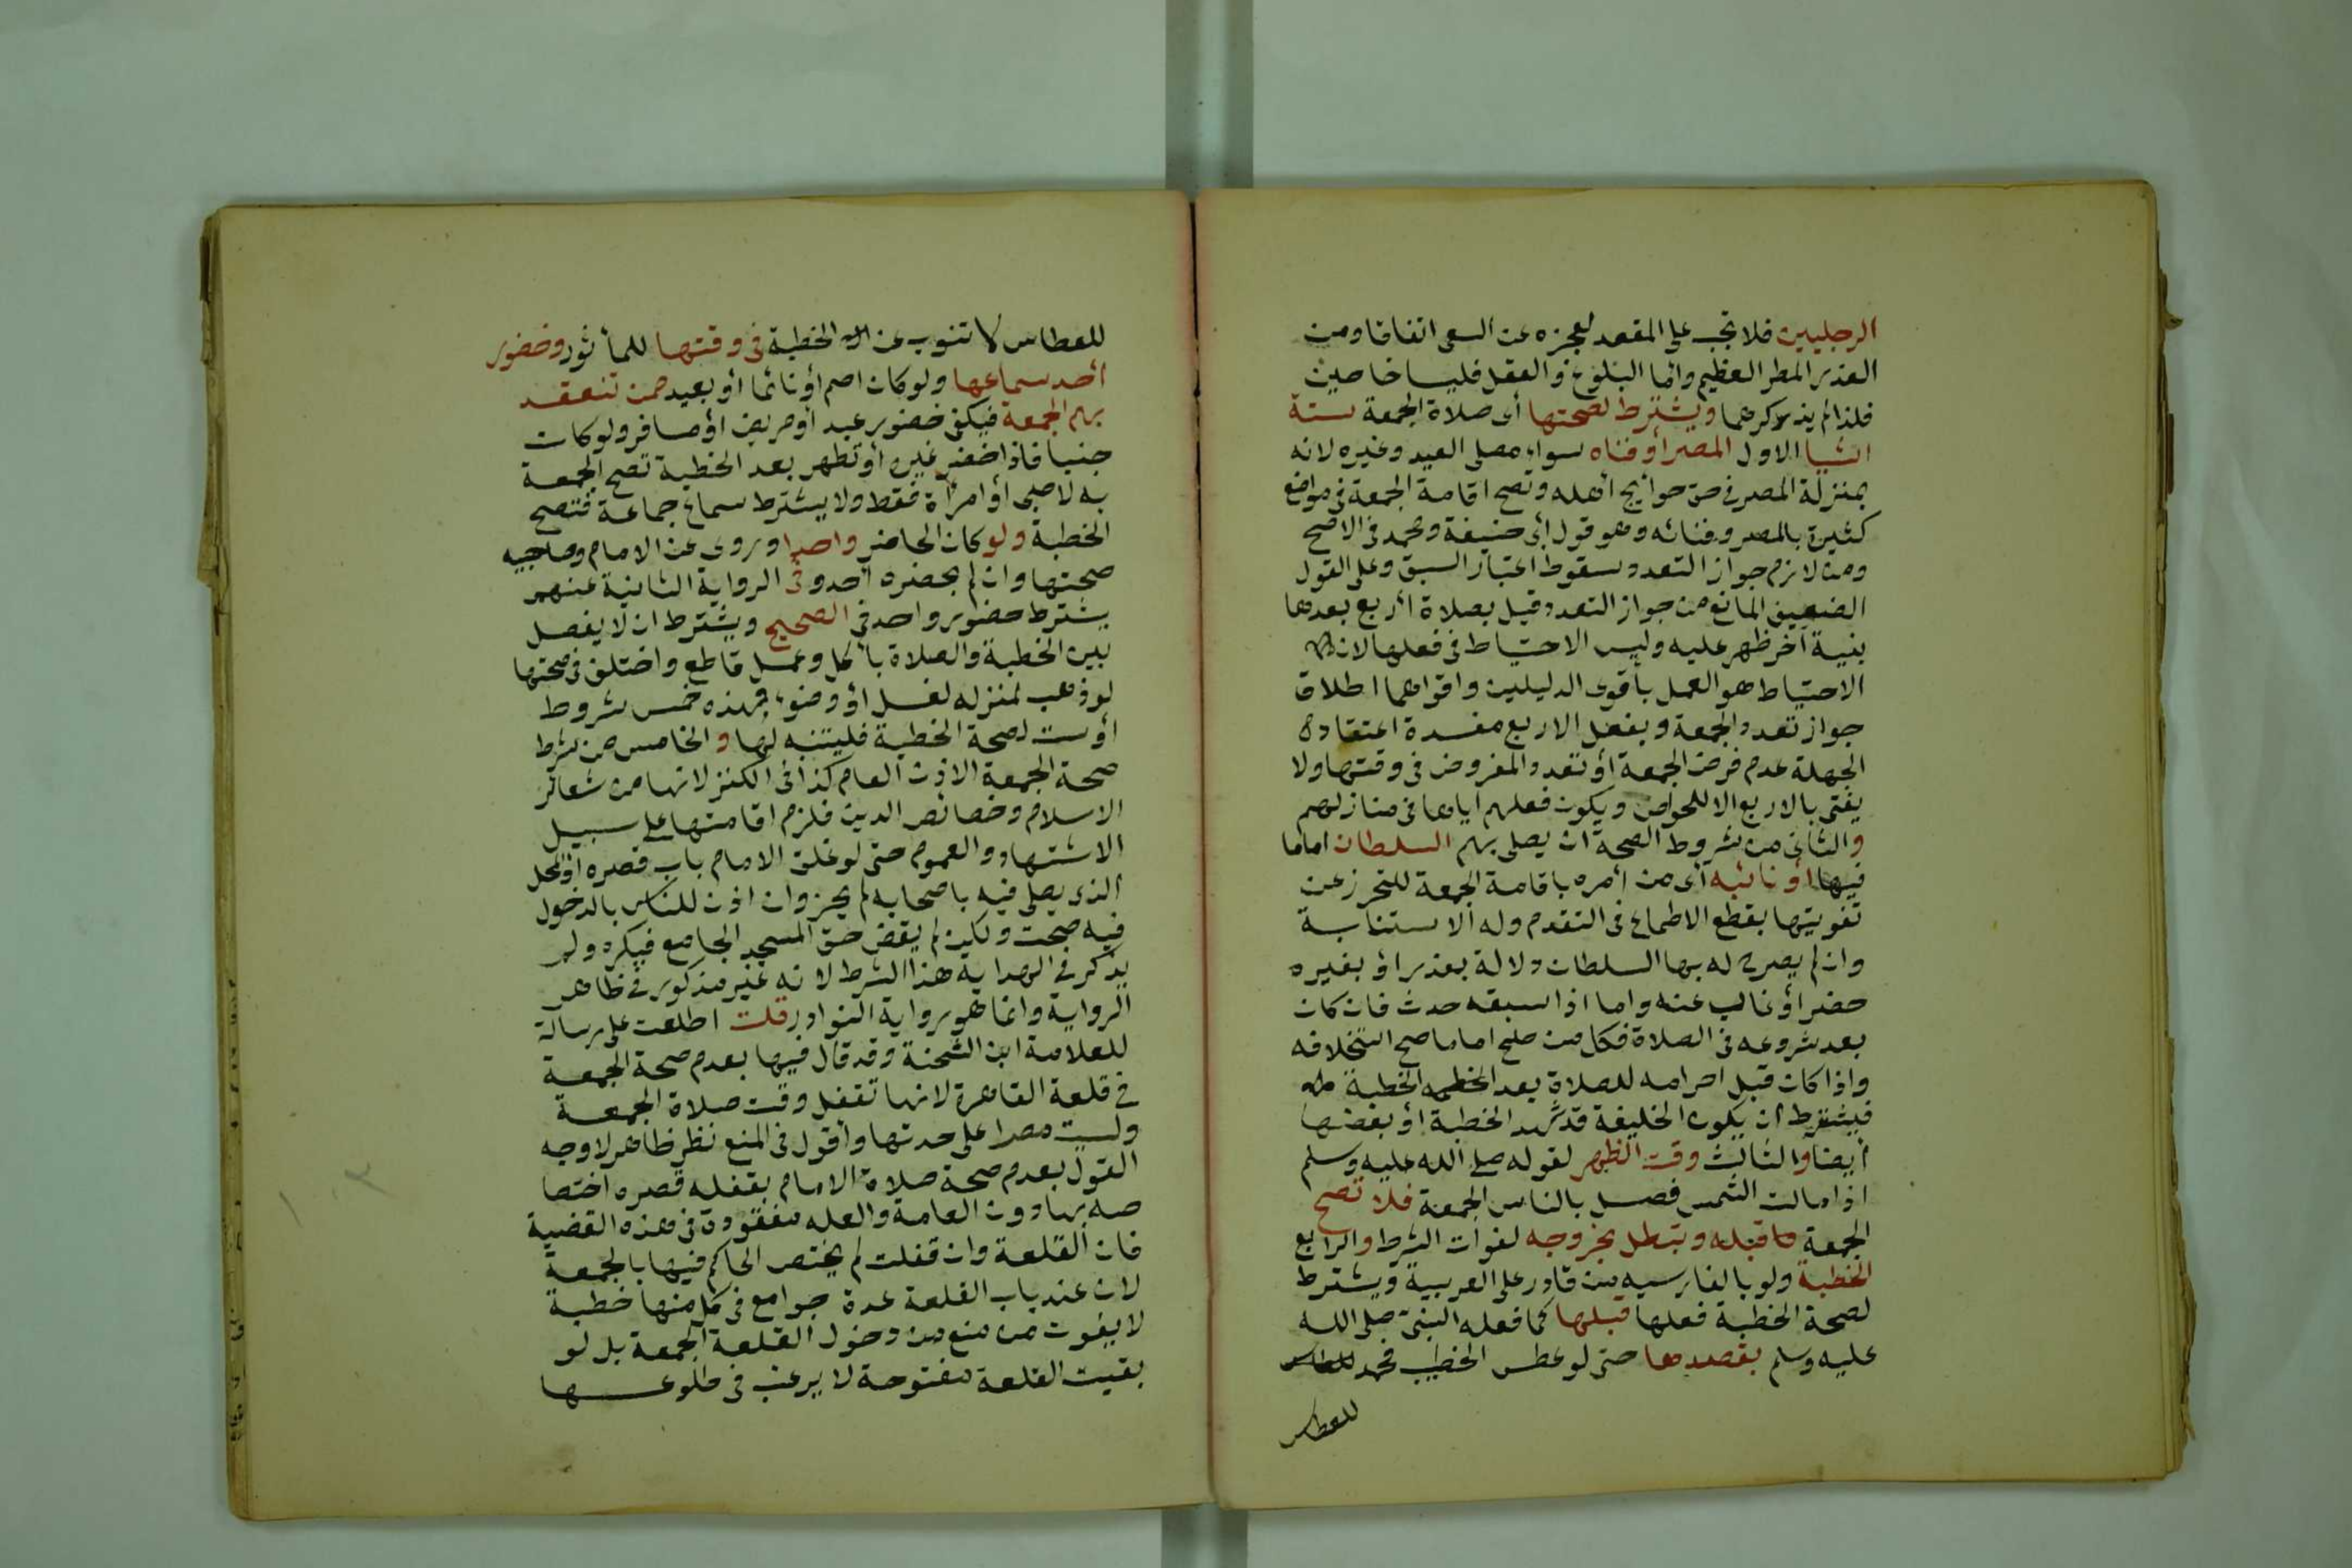 الرجليين فلا تجب على المقعد لعجزه عن السعى اتفاقا ومن
العذر المطر العظيم واما البلوغ والعقل فليسا خاصين
فلذا لم يذكرهما ويشترط لصحتها أى صلاة الجمعة ستة
اشيا الاول المصر أو فناه سواء مصلى العيد وغيره لانه
بمنزلة المصر فى حق حوائج أهله وتصح اقامة الجمعة فى مواضع
كثيرة بالمصر وفنائه وهو قول أبى حنيفة ومحمد فى الاصح
ومن لازم جواز التعدد سقوط اعتبار السبق وعلى القول
الضعيف المانع من جواز التعدد قيل بصلاة أربع بعدها
بنية آخر ظهر عليه وليس الاحتياط فى فعلها لان
الاحتياط هو العمل بأقوى الدليلين واقواهما اطلاق
جواز تعدد الجمعة وبفعل الاربع مفسدة اعتقاده
الجهلة عدم فرض الجمعة أو تعدد المفروض فى وقتها ولا
يفتى بالاربع الا للخواص ويكون فعلهم اياها فى منازلهم
والثانى من شروط الصحة ان يصلى بهم السلطان اماما
فيها أو نائبه أى من أمره باقامة الجمعة للتحرز عن
تفويتها بقطع الاطماع فى التقدم وله الاستنابة
وان لم يصرح له بها السلطان دلالة بعذر أو بغيره
حضر أو غاب عنه واما اذا سبقه حدث فان كان
بعد شروعه فى الصلاة فكل من صلح اماما صح استخلافه
واذا كان قبل احرامه للصلاة بعد الخطبة
فيشترط أن يكون الخليفة قد شهد الخطبة أو بعضها
أيضا والثالث وقت الظهر لقوله صلى الله عليه وسلم
اذا مالت الشمس فصل بالناس الجمعة فلا تصح
الجمعة قبله وتبطل بخروجه لفوات الشرط والرابع
الخطبة ولو بالفارسيه من قادر على العربية ويشترط
لصحة الخطبة فعلها قبلها كما فعله النبى صلى الله
عليه وسلم بقصدها حتى لو عطس الخطيب فحمد
للعطاس
للعطاس لا تنوب عن الخطبة فى وقتها للمأثور وحضور
أحد سماعها ولو كان اصم أو نائما أو بعيد ممن تنعقد
بهم الجمعة فيكفى حضور عبد أو مريض أو مسافر ولو كان
جنبا فاذا حضر غيره أو تطهر بعد الخطبة تصح الجمعة
به لا صبى أو امرأة فقط ولا يشترط سماع جماعة فتصح
الخطبة ولو كان الحاضر واحدا وروى عن الامام وصاحبيه
صحتها وان لم يحضره أحد وفى الرواية الثانية عنهم
يشترط حضور واحد فى الصحيح ويشترط ان لا يفصل
بين الخطبة والصلاة بأكل وعمل قاطع واختلف فى صحتها
لو ذهب لمنزله لغسل أو وضوء فهذه خمس شروط
أو ست لصحة الخطبة فليتنبه لها والخامس من شرط
صحة الجمعة الاذن العام كذا فى الكنز لانها من شعائر
الاسلام وخصائص الدين فلزم اقامتها على سبيل
الاشتهار والعموم حتى لو غلق الامام باب قصره أو المحل
الذى يصلى فيه باصحابه لم يجز وان اذن للناس بالدخول
فيه صحت ولكن لم يقض حق المسجد الجامع فيكره ولم
يذكر فى الهداية هذا الشرط لانه غير مذكور فى ظاهر
الرواية وانما هو رواية النوادر قلت اطلعت على رسالة
للعلامة ابن الشحنة وقد قال فيها بعدم صحة الجمعة
فى قلعة القاهرة لانها تقفل وقت صلاة الجمعة
وليست مصرا على حدتها وأقول فى المنع نظر ظاهر لا وجه
القول بعدم صحة صلاة الامام بقفله قصره اختصا
صه بها دون العامة والعله مفقودة فى هذه القضية
فان القلعة وان قفلت لم يختص الحاكم فيها بالجمعة
لان عند باب القلعة عدة جوامع فى كل منها خطبة
لا يفوت من منع من دخول القلعة الجمعة بل لو
بقيت القلعة مفتوحة لا يرغب فى طلوعها